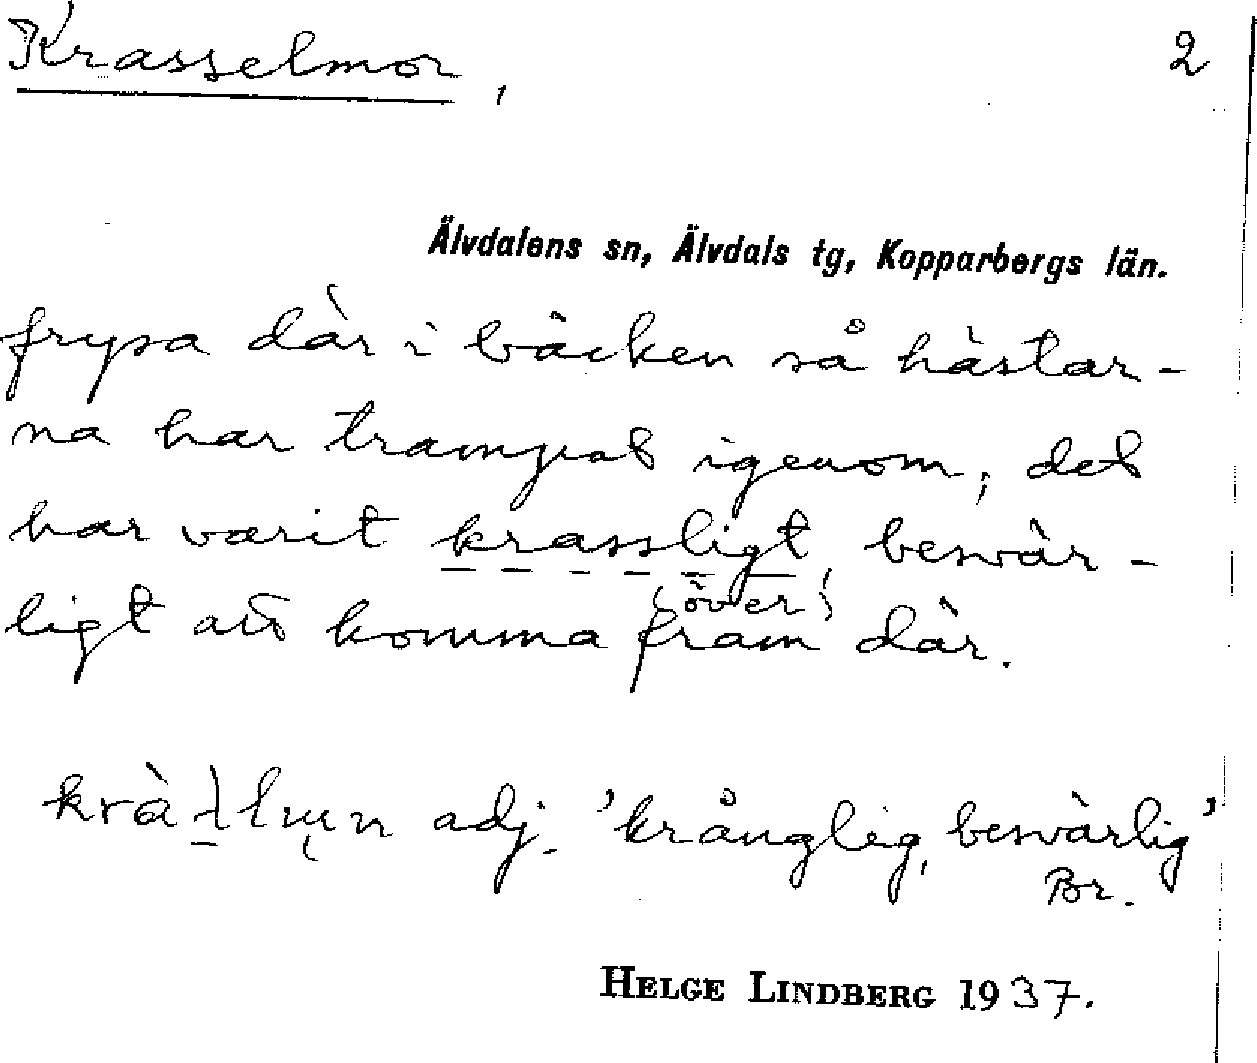 Krasselmor, 2
Älvdalens sn, Älvdals tg, Kopparbergs län.
frysa där i bäcken så hästar-
na har trampat igenom; det
har varit krassligt, besvär-
(över)
ligt att komma fram där.
adj. 'krånglig, besvärlig'
Bor.
HELGE LINDBERG 1937.